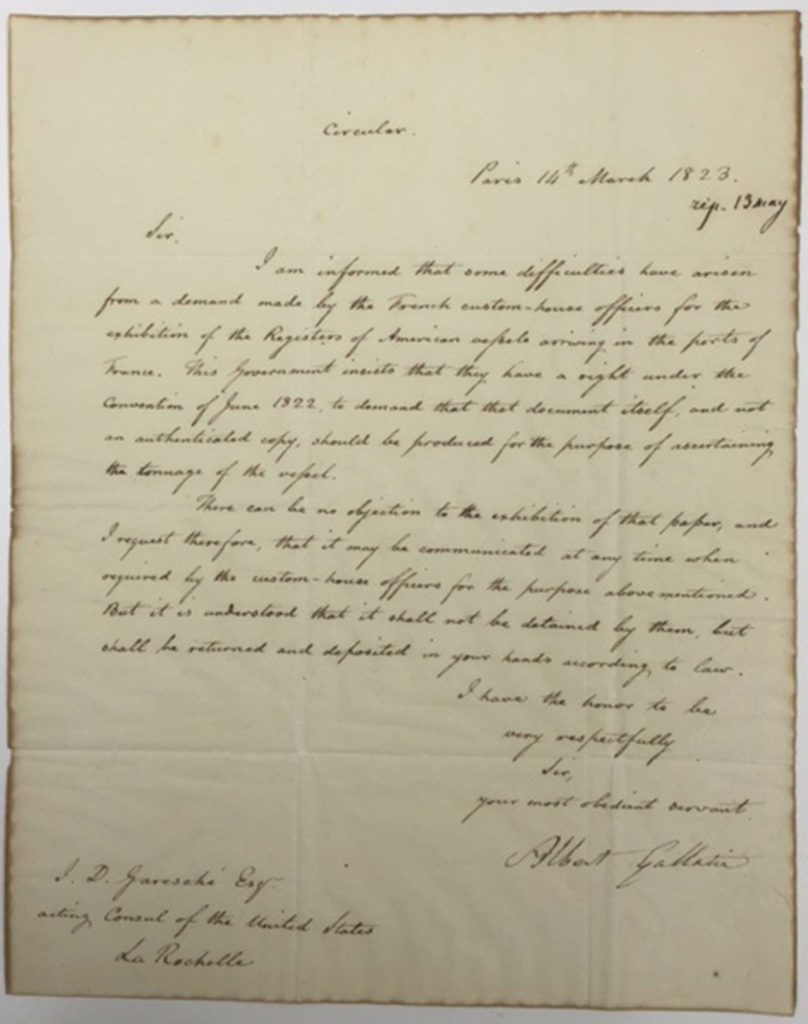 Circular.
Paris 14th March 1823.
rép. 13 may
Sir,
I am informed that some difficulties have arisen
from a demand made by the French custom-house officers for the
exhibition of the Registers of American vessels arriving in the ports of
France. This Government insists that they have a right under the
Convention of June 1822, to demand that that document itself, and not
an authenticated copy, should be produced for the purpose of ascertaining
the tonnage of the vessel.
There can be no objection to the exhibition of that paper, and
I request therefore, that it may be communicated at any time when
required by the custom-house officers for the purpose above mentioned.
But it is understood that it shall not be detained by them, but
shall be returned and deposited in your hands according to law.
I have the honor to be
very respectfully
Sir,
your most obedient servant.
Albert Gallatin
J. D. Garesché Esqr.
acting Consul of the United States
La Rochelle